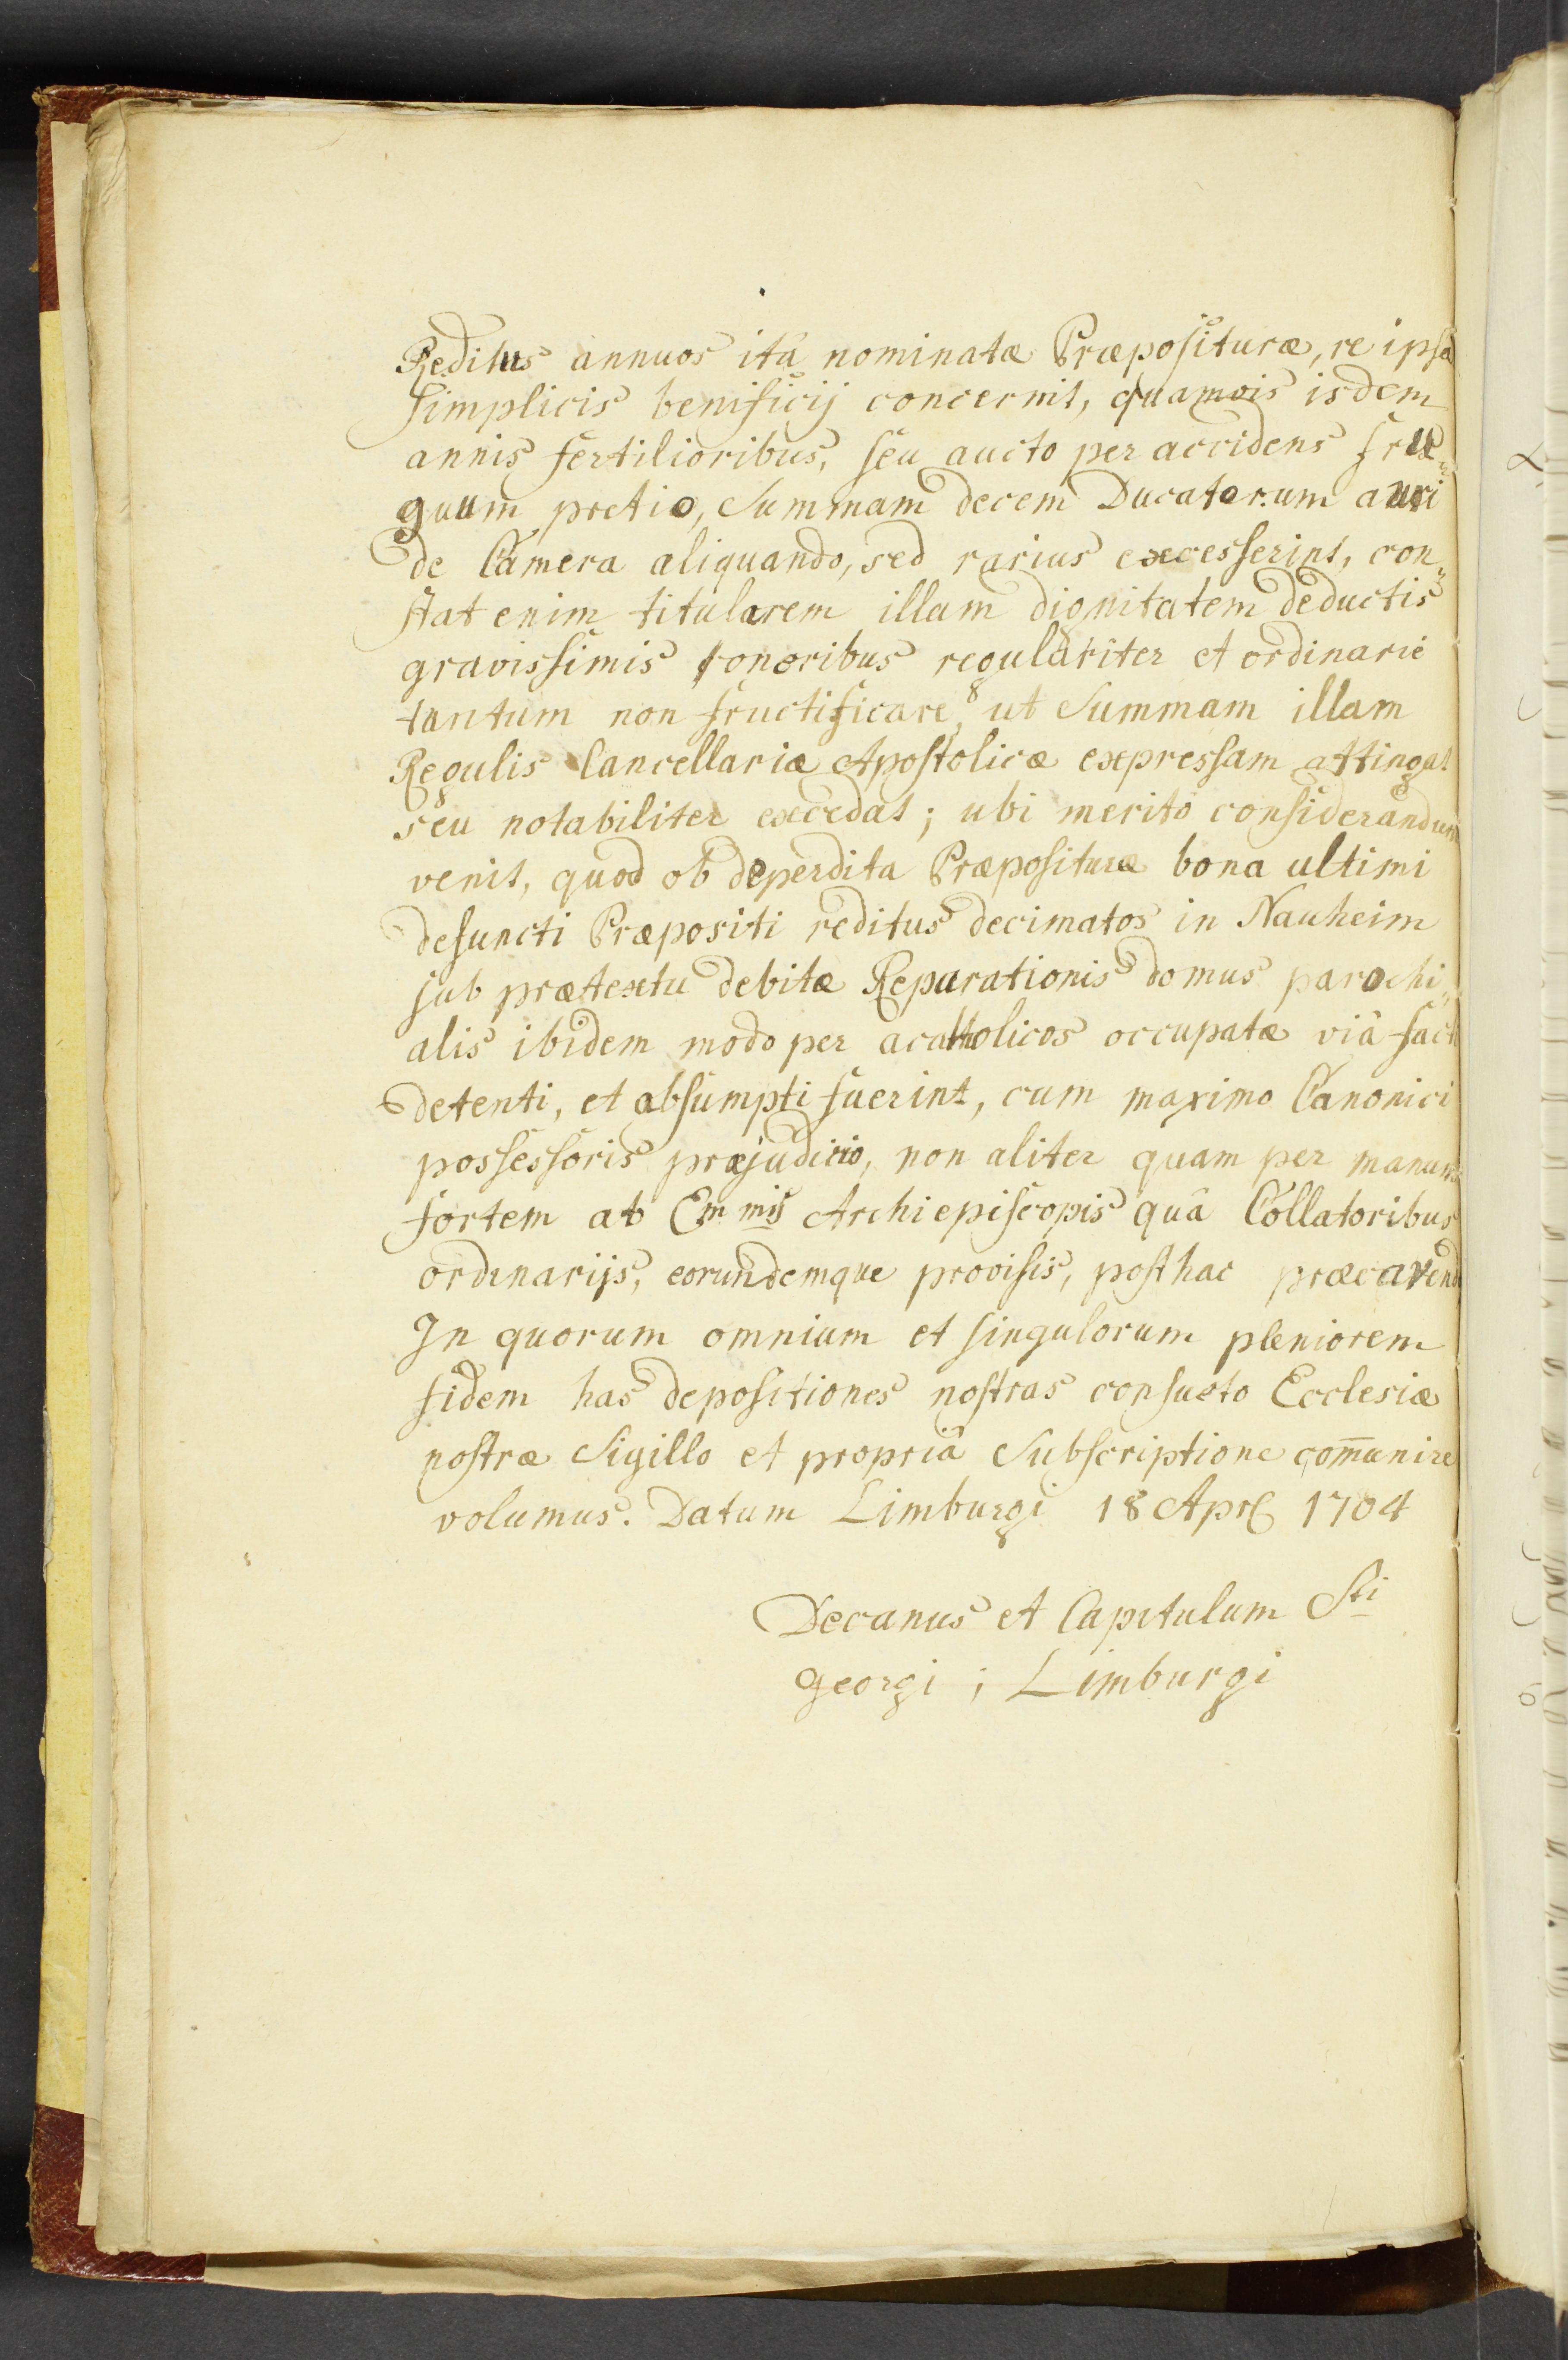 Reditus annuos ita nominatæ Præposituræ, re ipsa
simplicis benificij concernit, quamvis isdem
annis fertilioribus, seu aucto per accidens fru„
guum pretio, Summam decem Ducatorum auri
de Camera aliquando, sed rarius excesserint, con„
stat enim titularem illam dignitatem deductis
gravissimis onoribus regulariter et ordinarie
tantum non fructificare, ut Summam illam
Regulis Cancellariæ Apostolicæ expressam attingat
seu notabiliter excedat; ubi merito considerandum
venit, quod ob deperdita Præposituræ bona ultimi
defuncti Præpositi reditus decimatos in Nauheim
sub prætextu debitæ Reparationis domus parochi„
alis ibidem modo per acattholicos occupatæ viâ facti
detenti, et absumpti fuerint, cum maximo Canonici
possessoris præjudicio, non aliter quam per manum
fortem ab Em̄mis Archiepiscopis quâ Collatoribus
ordinarijs, eorundemque provisis, posthac præcavend
In quorum omnium et singulorum pleniorem
fidem has depositiones nostras consueto Ecclesiæ
nostræ Sigillo et propriâ Subscriptione com̄unire
volumus. Datum Limburgi 18 Apr 1704
Decanus et Capitulum Sti
Georgi; Limburgi